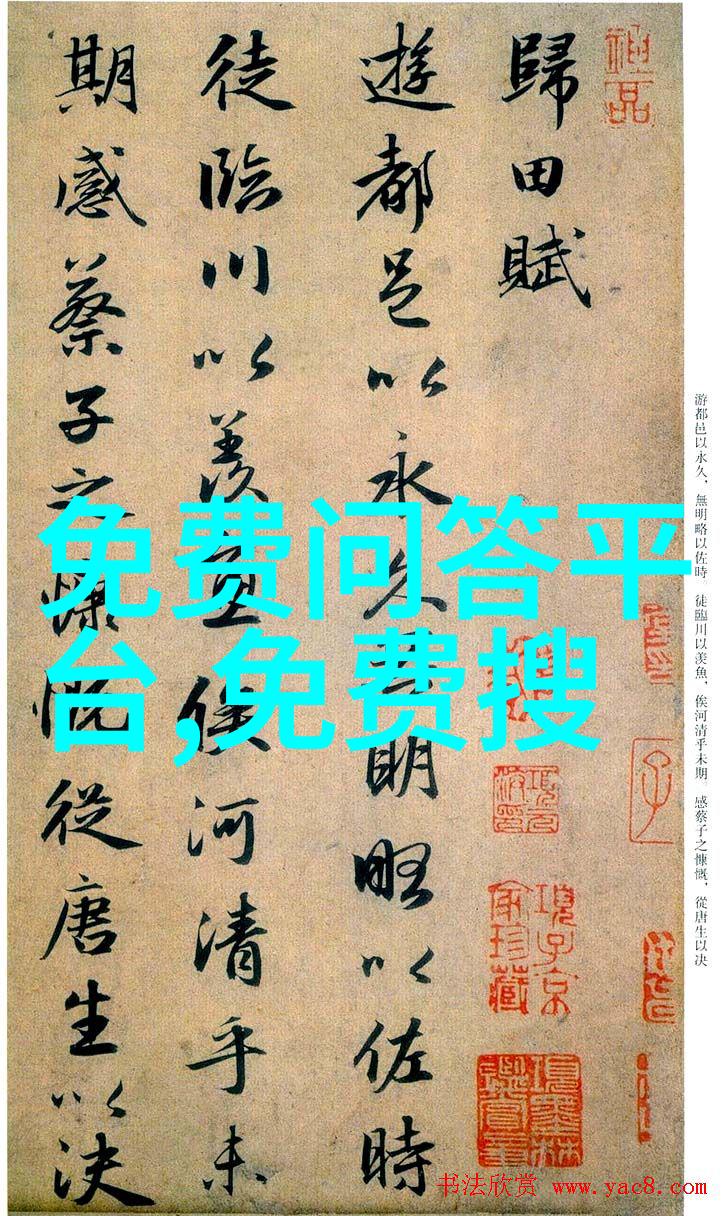 神品
歸田賦
遊都邑以永久無明略以佐時
徒臨川以羨魚俟河清乎未
期感蔡子之慷慨從唐生以決
免费问答平
台,免费搜
游都邑以永久，無明略以佐時。徒臨川以羨魚，俟河清乎未期。感蔡子之慷慨，從唐生以决
項子京
家珍藏
項墨林
鑑賞章
书法欣赏 www.yac8.com